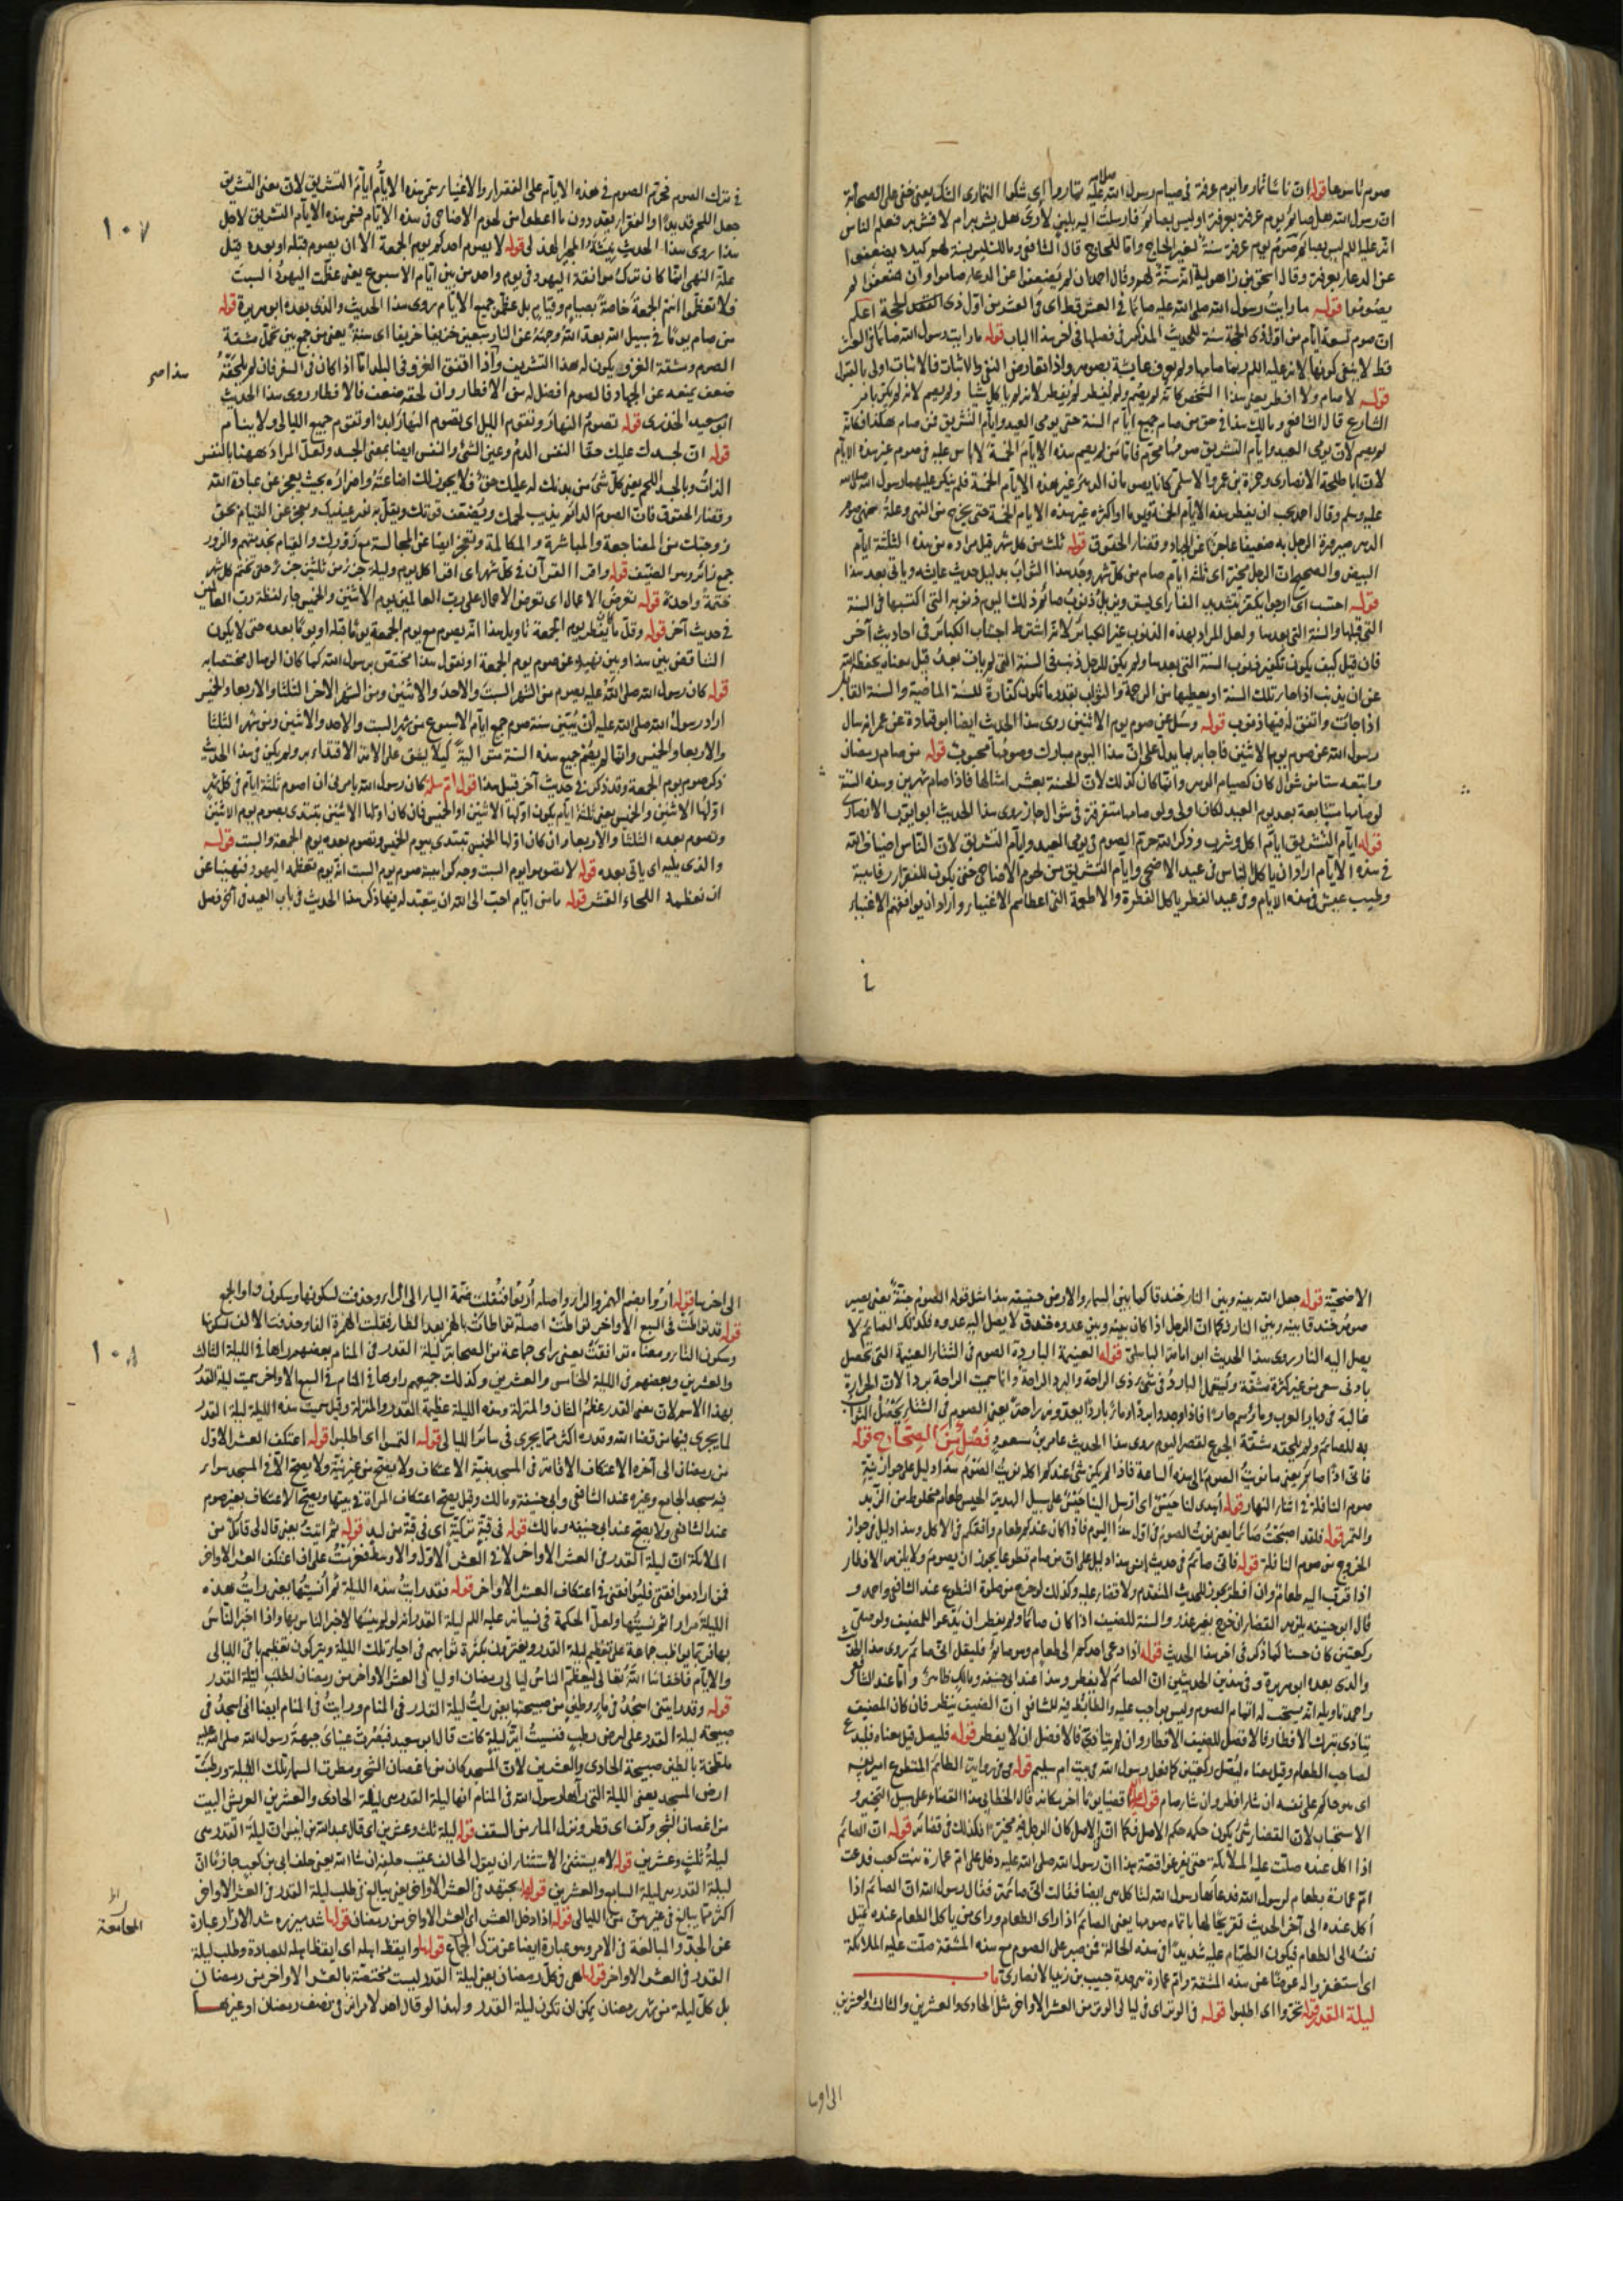 صوم تاسوعا قوله ان ناسا تماروا يوم عرفة في صيام رسول الله عليه تماروا اى شكوا التمارى الشك يعنى خفى على الصحابة
ان رسول الله هل صائم يوم عرفة بعرفة او ليس بصائم فارسلت اليه بلبن لارى هل يشربه ام لا فشربه فعلم الناس
انه عليه السلم ليس بصائم صوم يوم عرفة سنة لغير الحاج واما للحاج قال الشافعى ومالك ليس بسنة لهم كيلا يضعفوا
عن الدعاء بعرفة وقال اسحق بن راهويه انه سنة لهم وقال احمد ان لم يضعفوا عن الدعاء صاموا وان ضعفوا لم
يصوموا قوله ما رايت رسول الله صلى الله عليه صائما في العشر قط اى في العشر من اول ذى الحجة اعلم
ان صوم تسعة ايام من اول ذى الحجة سنة للحديث المذكور في فضلها في اخر هذا الباب قوله ما رايت رسول الله صائما في العشر
قط لا ينفى كونها سنة لانه عليه السلم ربما صامها ولم تعرف عايشة بصومه واذا تعارض النفى والاثبات فالاثبات اولى بالقبول
قوله لا صام ولا افطر يعنى هذا الشخص كانه لم يصم ولم يفطر لم يفطر لانه لم ياكل شيا ولم يصم لانه لم يكن بامر
الشارع قال الشافعى ومالك هذا في حق من صام جميع ايام السنة حتى يومى العيد وايام التشريق فمن صام هكذا فكانه
لم يصم لان يومى العيد وايام التشريق صومها محرم فاما من لم يصم هذه الايام الخمسة لا باس عليه في صوم غير هذه الايام
لان ابا طلحة الانصارى وحمزة بن عمرو الاسلمى كانا يصومان الدهر غير هذه الايام الخمسة فلم ينكر عليهما رسول الله صلى الله
عليه وسلم وقال احمد يجب ان يفطر هذه الايام الخمسة او اكثر غير هذه الايام الخمسة حتى يخرج من النهى وعلة نهى صوم
الدهر صيرورة الرجل به ضعيفا عاجزا عن الجهاد وقضاء الحقوق قوله ثلث من كل شهر قيل مراده من هذه الثلثة ايام
البيض والصحيح ان الرجل مخير اى ثلثة ايام صام من كل شهر وجد هذا الثواب بدليل حديث عايشة وياتى بعد هذا
قوله احتسب اى ارجو ان يكفر بتشديد الفاء اى يستر ويزيل ذنوب صائم ذلك اليوم ذنوبه التى اكتسبها في السنة
التى قبلها والسنة التى بعدها ولعل المراد بهذه الذنوب غير الكبائر لانه اشترط اجتناب الكبائر في احاديث اخر
فان قيل كيف يكون تكفير ذنوب السنة التى بعدها ولم يكن للرجل ذنب في السنة التى لم يات بعد قيل معناه يحفظه الله
عن ان يذنب اذا جاء تلك السنة او يعطيها من الرحمة والثواب بقدر ما تكون كفارة للسنة الماضية والسنة القابلة
اذا جائت واتفق له فيها ذنوب قوله وسئل عن صوم يوم الاثنين روى هذا الحديث ايضا ابو قتادة عن عمر انه سال
رسول الله عن صوم يوم الاثنين فاجابه بما يدل على ان هذا اليوم مبارك وصومه محبوب قوله من صام رمضان
واتبعه ستا من شوال كان كصيام الدهر وانما كان كذلك لان الحسنة بعشر امثالها فاذا صام شهرين وهذه الستة
لو صامها متتابعة بعد يوم العيد لكان اولى ولو صامها متفرقة في شوال جاز روى هذا الحديث ابو ايوب الانصارى
قوله ايام التشريق ايام اكل وشرب وذكر الله حرم الصوم في يومى العيد وايام التشريق لان الناس اضياف الله
في هذه الايام اراد ان ياكل الناس في عيد الاضحى وايام التشريق من لحوم الاضاحى حتى يكون للفقراء رفاهية
وطيب عيش في هذه الايام وفي عيد الفطر ياكل الفطرة والاطعمة التى اعطاهم الاغنياء واراد ان يوافقهم الاغنياء
١٠٧
في ترك الصوم فحرم الصوم في هذه الايام على الفقراء والاغنياء سمى هذه الايام ايام التشريق لان معنى التشريق
جعل اللحم قديدا والفقراء يقددون ما اعطوا من لحوم الاضاحى في هذه الايام فسمى هذه الايام التشريق لاجل
هذا روى هذا الحديث نبيشة الخير الهذلى قوله لا يصوم احدكم يوم الجمعة الا ان يصوم قبله او بعده قيل
علة النهى انما كان ترك موافقة اليهود في يوم واحد من بين ايام الاسبوع يعنى عظمت اليهود السبت
فلا تعظموا انتم الجمعة خاصة بصيام وقيام بل عظموا جميع الايام روى هذا الحديث والذى بعده ابو هريرة قوله
من صام يوما في سبيل الله بعد الله وجهه عن النار سبعين خريفا خريفا اى سنة يعنى من جمع بين تحمل مشقة
الصوم ومشقة الغزو يكون له هذا التشريف واذا اتفق الغزو في البلد اما اذا كان في السفر فان لم يلحقه
ضعف يمنعه عن الجهاد فالصوم افضل له من الافطار وان لحقه ضعف فالافطار روى هذا الحديث
ابو سعيد الخدرى قوله تصوم النهار وتقوم الليل اى تصوم النهار ابدا وتقوم جميع الليالى ولا ينام
قوله ان لجسدك عليك حقا النفس الدم وعين الشئ والنفس ايضا بمعنى الجسد ولعل المراد ههنا بالنفس
الذات وبالجسد اللحم يعنى كل شئ من بدنك له عليك حق فلا يجوز لك اضاعته واضراره بحيث يعجز عن عبادة الله
وقضاء الحقوق فان الصوم الدائم يذيب لحمك ويضعف قوتك ويقل به نور عينيك ويعجز عن القيام بحق
زوجتك من المضاجعة والمباشرة والمكالمة وتعجز ايضا عن المجالسة مع زورك والقيام بخدمتهم والزور
جمع زائر وهو الضيف قوله واقرا القران في كل شهر اى اقرا كل يوم وليلة جزء من ثلثين جزء حتى تختم كل شهر
ختمة واحدة قوله تعرض الاعمال اى تعرض الاعمال على رب العالمين يوم الاثنين والخميس جاء لفظة رب العالمين
في حديث آخر قوله وقل ما يفطر يوم الجمعة تاويل هذا انه يصوم مع يوم الجمعة يوما قبله او يوما بعده حتى لا يكون
التناقض بين هذا وبين نهيه عن صوم يوم الجمعة او نقول هذا مختص برسول الله كما كان الوصال مختصا به
قوله كان رسول الله صلى الله عليه يصوم من الشهر السبت والاحد والاثنين ومن الشهر الاخر الثلثا والاربعا والخميس
اراد رسول الله صلى الله عليه ان يبين سنة صوم جميع ايام الاسبوع من شهر السبت والاحد والاثنين ومن شهر الثلثا
والاربعا والخميس وانما لم يصم جميع هذه الستة متوالية كيلا يشق على الامة الاقتداء به ولم يكن في هذا الحديث
ذكر صوم يوم الجمعة وقد ذكر في حديث آخر قبل هذا قول ام سلمة كان رسول الله يامرنى ان اصوم ثلثة ايام في كل شهر
اولها الاثنين والخميس يعنى ثلثة ايام يكون اولها الاثنين او الخميس فان كان اولها الاثنين يبتدى بصوم يوم الاثنين
وتصوم بعده الثلثا والاربعا وان كان اولها الخميس تبتدى بيوم الخميس وتصوم بعده يوم الجمعة والسبت قوله
والذى يليه اى ياتى بعده قوله لا تصوموا يوم السبت وجه كراهية صوم يوم السبت انه يوم تعظمه اليهود فنهينا عن
ان نعظمه اللحاء القشر قوله ما من ايام احب الى الله ان يتعبد له فيها ذكر هذا الحديث في باب العيد في آخر فصل
هذا صح
الاضحية قوله جعل الله بينه وبين النار خندقا كما بين السماء والارض حقيقة هذا مثل قوله الصوم جنة يعنى يصير
صومه خندقا بينه وبين النار فكما ان الرجل اذا كان بينه وبين عدوه خندق لا يصل اليه عدوه فكذلك الصائم لا
يصل اليه النار روى هذا الحديث ابو امامة الباهلى قوله الغنيمة الباردة الصوم في الشتاء الغنيمة التى تحصل
بادنى سعى من غير كثرة مشقة ويستعمل البارد في شئ ذى الراحة والبرد الراحة وانما سميت الراحة بردا لان الحرارة
غالبة في ديار العرب
به للصائم ولم يلحقه مشقة الجوع لقصر اليوم روى هذا الحديث عامر بن مسعود فصل من الصحاح قوله
فانى اذا صائم يعنى ما نويت الصوم الى هذه الساعة فاذا لم يكن شئ عندكم اكله نويت الصوم هذا دليل على جواز نية
صوم النافلة في اثناء النهار قوله اهدى لنا حيس اى ارسل الينا حيس على سبيل الهدية الحيس طعام مخلوط من الزبد
والتمر قوله فلقد اصبحت صائما يعنى نويت الصوم في اول هذا اليوم فاذا كان عندكم طعام وافقكم في الاكل وهذا دليل في جواز
الخروج من صوم النافلة قوله فانى صائم في حديث انس هذا دليل على ان من صام تطوعا يجوز ان يصوم ولا يلزمه الافطار
اذا قرب اليه طعام وان افطر يجوز للحديث المتقدم ولا قضاء عليه وكذلك لو خرج من صلوة التطوع عند الشافعى واحمد و
قال ابو حنيفة يلزمه القضاء ان خرج بغير عذر والسنة للضيف اذا كان صائما ولم يفطر ان يدعوا للمضيف ولو صلى
ركعتين كان حسنا كما ذكر في اخر هذا الحديث قوله اذا دعى احدكم الى طعام وهو صائم فليقل انى صائم روى هذا الحديث
والذى بعده ابو هريرة وفي هذين الحديثين ان الصائم لا يفطر وهذا عند ابى حنيفة ومالك ظاهر واما عند الشافعى
واحمد تاويله انه يستحب له اتمام الصوم وليس بواجب عليه والضابط فيه للشافعى ان الضيف ينظر فان كان المضيف
يتاذى بترك الافطار فالافضل للضيف الافطار وان لم يتاذ فالافضل ان لا يفطر قوله فليصل قيل معناه فليدع
لصاحب الطعام وقيل معناه ليصل ركعتين كما فعل رسول الله في بيت ام سليم قوله وفي رواية الصائم المتطوع امير نفسه
اى هو حاكم على نفسه ان شاء افطر وان شاء صام قوله اقضيا يوما اخر مكانه قال الخطابى هذا القضاء على سبيل التخيير و
الاستحباب لان القضاء شئ يكون حكمه حكم الاصل فكما ان في الاصل كان الرجل فيه مخيرا فكذلك في قضائه قوله ان الصائم
اذا اكل عنده صلت عليه الملائكة حتى يفرغوا قصة هذا ان رسول الله صلى الله عليه دخل على ام عمارة بنت كعب فدعت
ام عمارة بطعام لرسول الله فدعاها رسول الله لتاكل هى ايضا فقالت انى صائمة فقال رسول الله ان الصائم اذا
أكل عنده الى آخر الحديث تفريحا لها باتمام صومها يعنى الصائم اذا راى الطعام وراى من ياكل الطعام عنده يميل
نفسه الى الطعام فيكون الصيام عليه شديدا في هذه الحالة فمن صبر على الصوم مع هذه المشقة صلت عليه الملائكة
اى استغفروا له عوضا عن هذه المشقة وام عمارة هى جدة حبيب بن زيد الانصارى باب
ليلة القدر قوله تحروا اى اطلبوا قوله في الوتر اى في ليالى الوتر من العشر الاواخر مثل الحادى والعشرين والثالث والعشرين
١٠٨
الى اخرها قوله أروا بضم الهمزة والراء واصله أريوا فنقلت ضمة الياء الى الراء وحذفت لسكونها وسكون واو الجمع
قوله قد تواطت في السبع الاواخر تواطت اصله تواطات بالهمز بعد الطاء فقلبت الهمزة الفا وحذفت الالف لسكونها
وسكون التاء ومعناه توافقت يعنى راى جماعة من الصحابة ليلة القدر في المنام بعضهم راها في الليلة الثالث
والعشرين وبعضهم في الليلة الخامس والعشرين وكذلك جميعهم راوها في المنام في السبع الاواخر سميت ليلة القدر
بهذا الاسم لان معنى القدر عظم الشان والمنزلة وهذه الليلة عظيمة القدر والمنزلة وقيل سميت هذه الليلة ليلة القدر
لما يجرى فيها من قضاء الله وقدره اكثر مما يجرى في سائر الليالى قوله التمسوا اى اطلبوا قوله اعتكف العشر الاول
من رمضان الى آخره الاعتكاف الاقامة في المسجد بنية الاعتكاف ولا يصح من غير نية ولا يصح الا في المسجد سواء
فيه مسجد الجامع وغيره عند الشافعى وابى حنيفة ومالك وقيل يصح اعتكاف المراة في بيتها ويصح الاعتكاف بغير صوم
عند الشافعى ولا يصح عند ابى حنيفة ومالك قوله في قبة تركية اى في قبة من لبد قوله ثم اتيت يعنى قال لى قائل من
الملائكة ان ليلة القدر في العشر الاواخر لا في العشر الاول والاوسط فعزمت على ان اعتكف العشر الاواخر
فمن اراد موافقتى فليوافقنى في اعتكاف العشر الاواخر قوله فقد رايت هذه الليلة ثم أنسيتها يعنى رايت هذه
الليلة مرارا ثم نسيتها ولعل الحكمة في نسيانه عليه السلم ليلة القدر انه لو لم ينسها لاخبر الناس بها واذا اخبر الناس
بها فربما يواظب جماعة على تعظيم ليلة القدر ويغترون بكثرة ثوابهم في احياء تلك الليلة ويتركون تعظيم باقى الليالى
والايام فاخفاها الله تعالى ليعظم الناس ليالى رمضان او ليالى العشر الاواخر من رمضان لطلب ليلة القدر
قوله وقد رايتنى اسجد في ماء وطين من صبيحتها يعنى رايت ليلة القدر في المنام ورايت في المنام ايضا انى اسجد في
صبيحة ليلة القدر على ارض رطب فنسيت اية ليلة كانت قال ابو سعيد فبصرت عيناى جبهة رسول الله صلى الله عليه
ملطخة بالطين صبيحة الحادى والعشرين لان المسجد كان من اغصان الشجر ومطرت السماء تلك الليلة ورطبت
ارض المسجد يعنى الليلة التى رآها رسول الله في المنام انها ليلة القدر هى ليلة الحادى والعشرين العريش البيت
من اغصان الشجر وكف اى قطر ونزل الماء من السقف قوله ليلة ثلث وعشرين اى قال عبد الله بن انيس ان ليلة القدر هى
ليلة ثلث وعشرين قوله لا يستثنى الاستثناء ان يقول الحالف عقيب حلفه ان شاء الله يعنى حلف ابى بن كعب جازما ان
ليلة القدر هى ليلة السابع والعشرين قولها يجتهد في العشر الاواخر يعنى يبالغ في طلب ليلة القدر في العشر الاواخر
اكثر مما يبالغ في غيرهن من الليالى قوله اذا دخل العشر اى العشر الاواخر من رمضان قولها شد ميزره شد الازار عبارة
عن الجد والمبالغة في الامر وهو عبارة ايضا عن ترك الجماع قولها وايقظ اهله اى ايقظ اهله للعبادة وطلب ليلة
القدر في العشر الاواخر قوله هى في كل رمضان يعنى ليلة القدر ليست مختصة بالعشر الاواخر من رمضان
بل كل ليلة من شهر رمضان يمكن ان تكون ليلة القدر ولهذا لو قال احد لامراته في نصف رمضان او غيرها
المجامعة